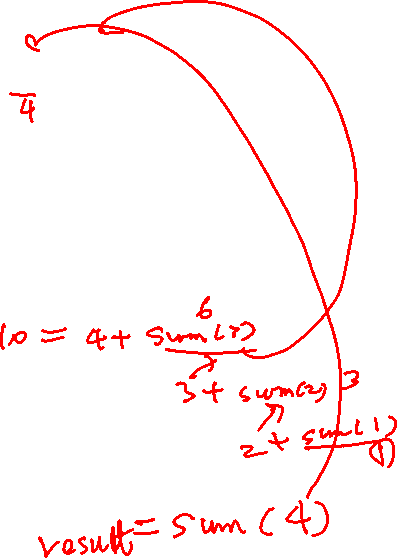 4
6
10 = 4 + sum(3)
3 + sum(2) 3
2 + sum(1)
1
result = sum(4)